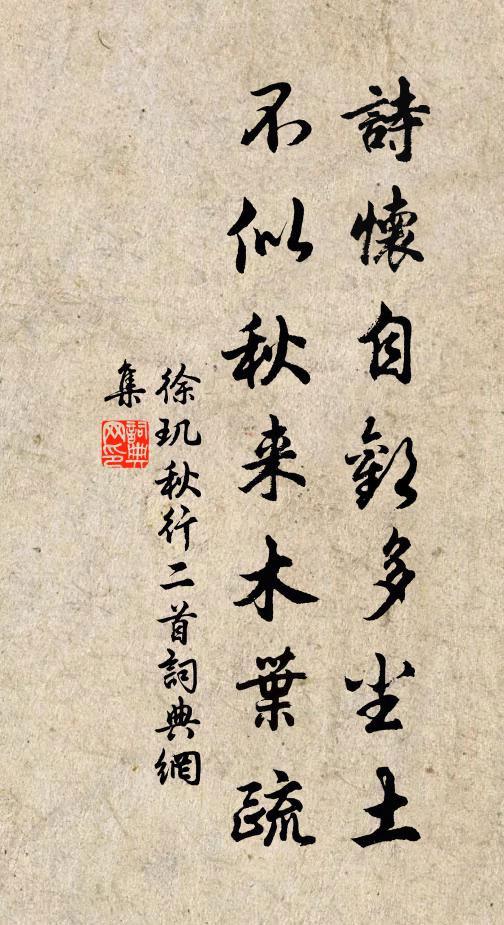 詩懷自歎多尘土
不似秋来木葉疏
徐玑秋行二首詞典網
集
詞典网印